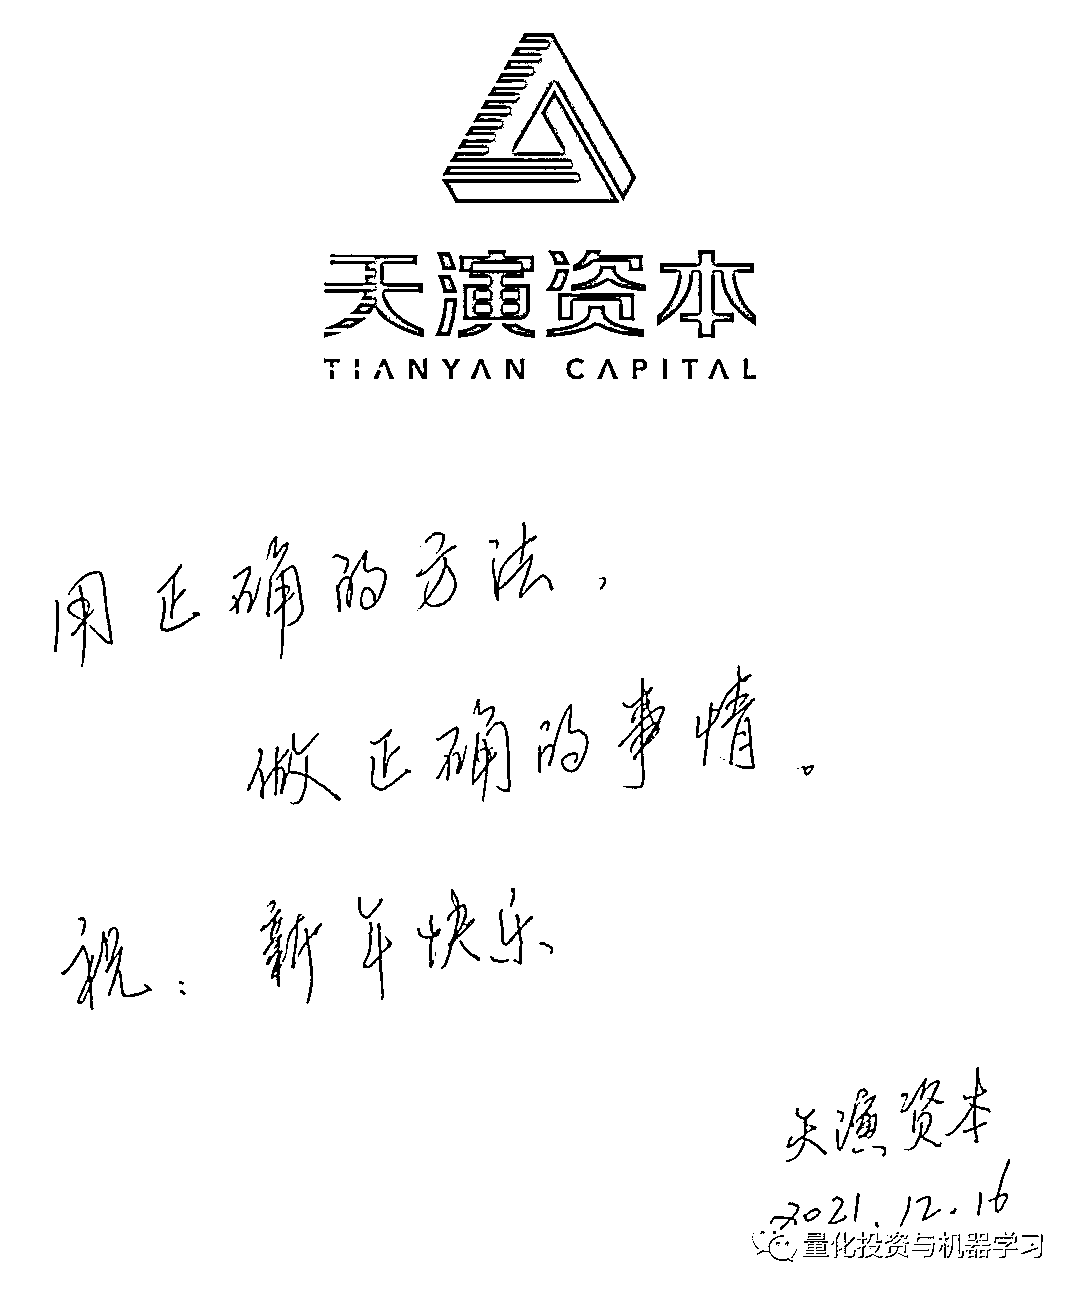 天演资本
TIANYAN CAPITAL
用正确的方法，
做正确的事情。
祝：新年快乐
天演资本
2021.12.16
量化投资与机器学习